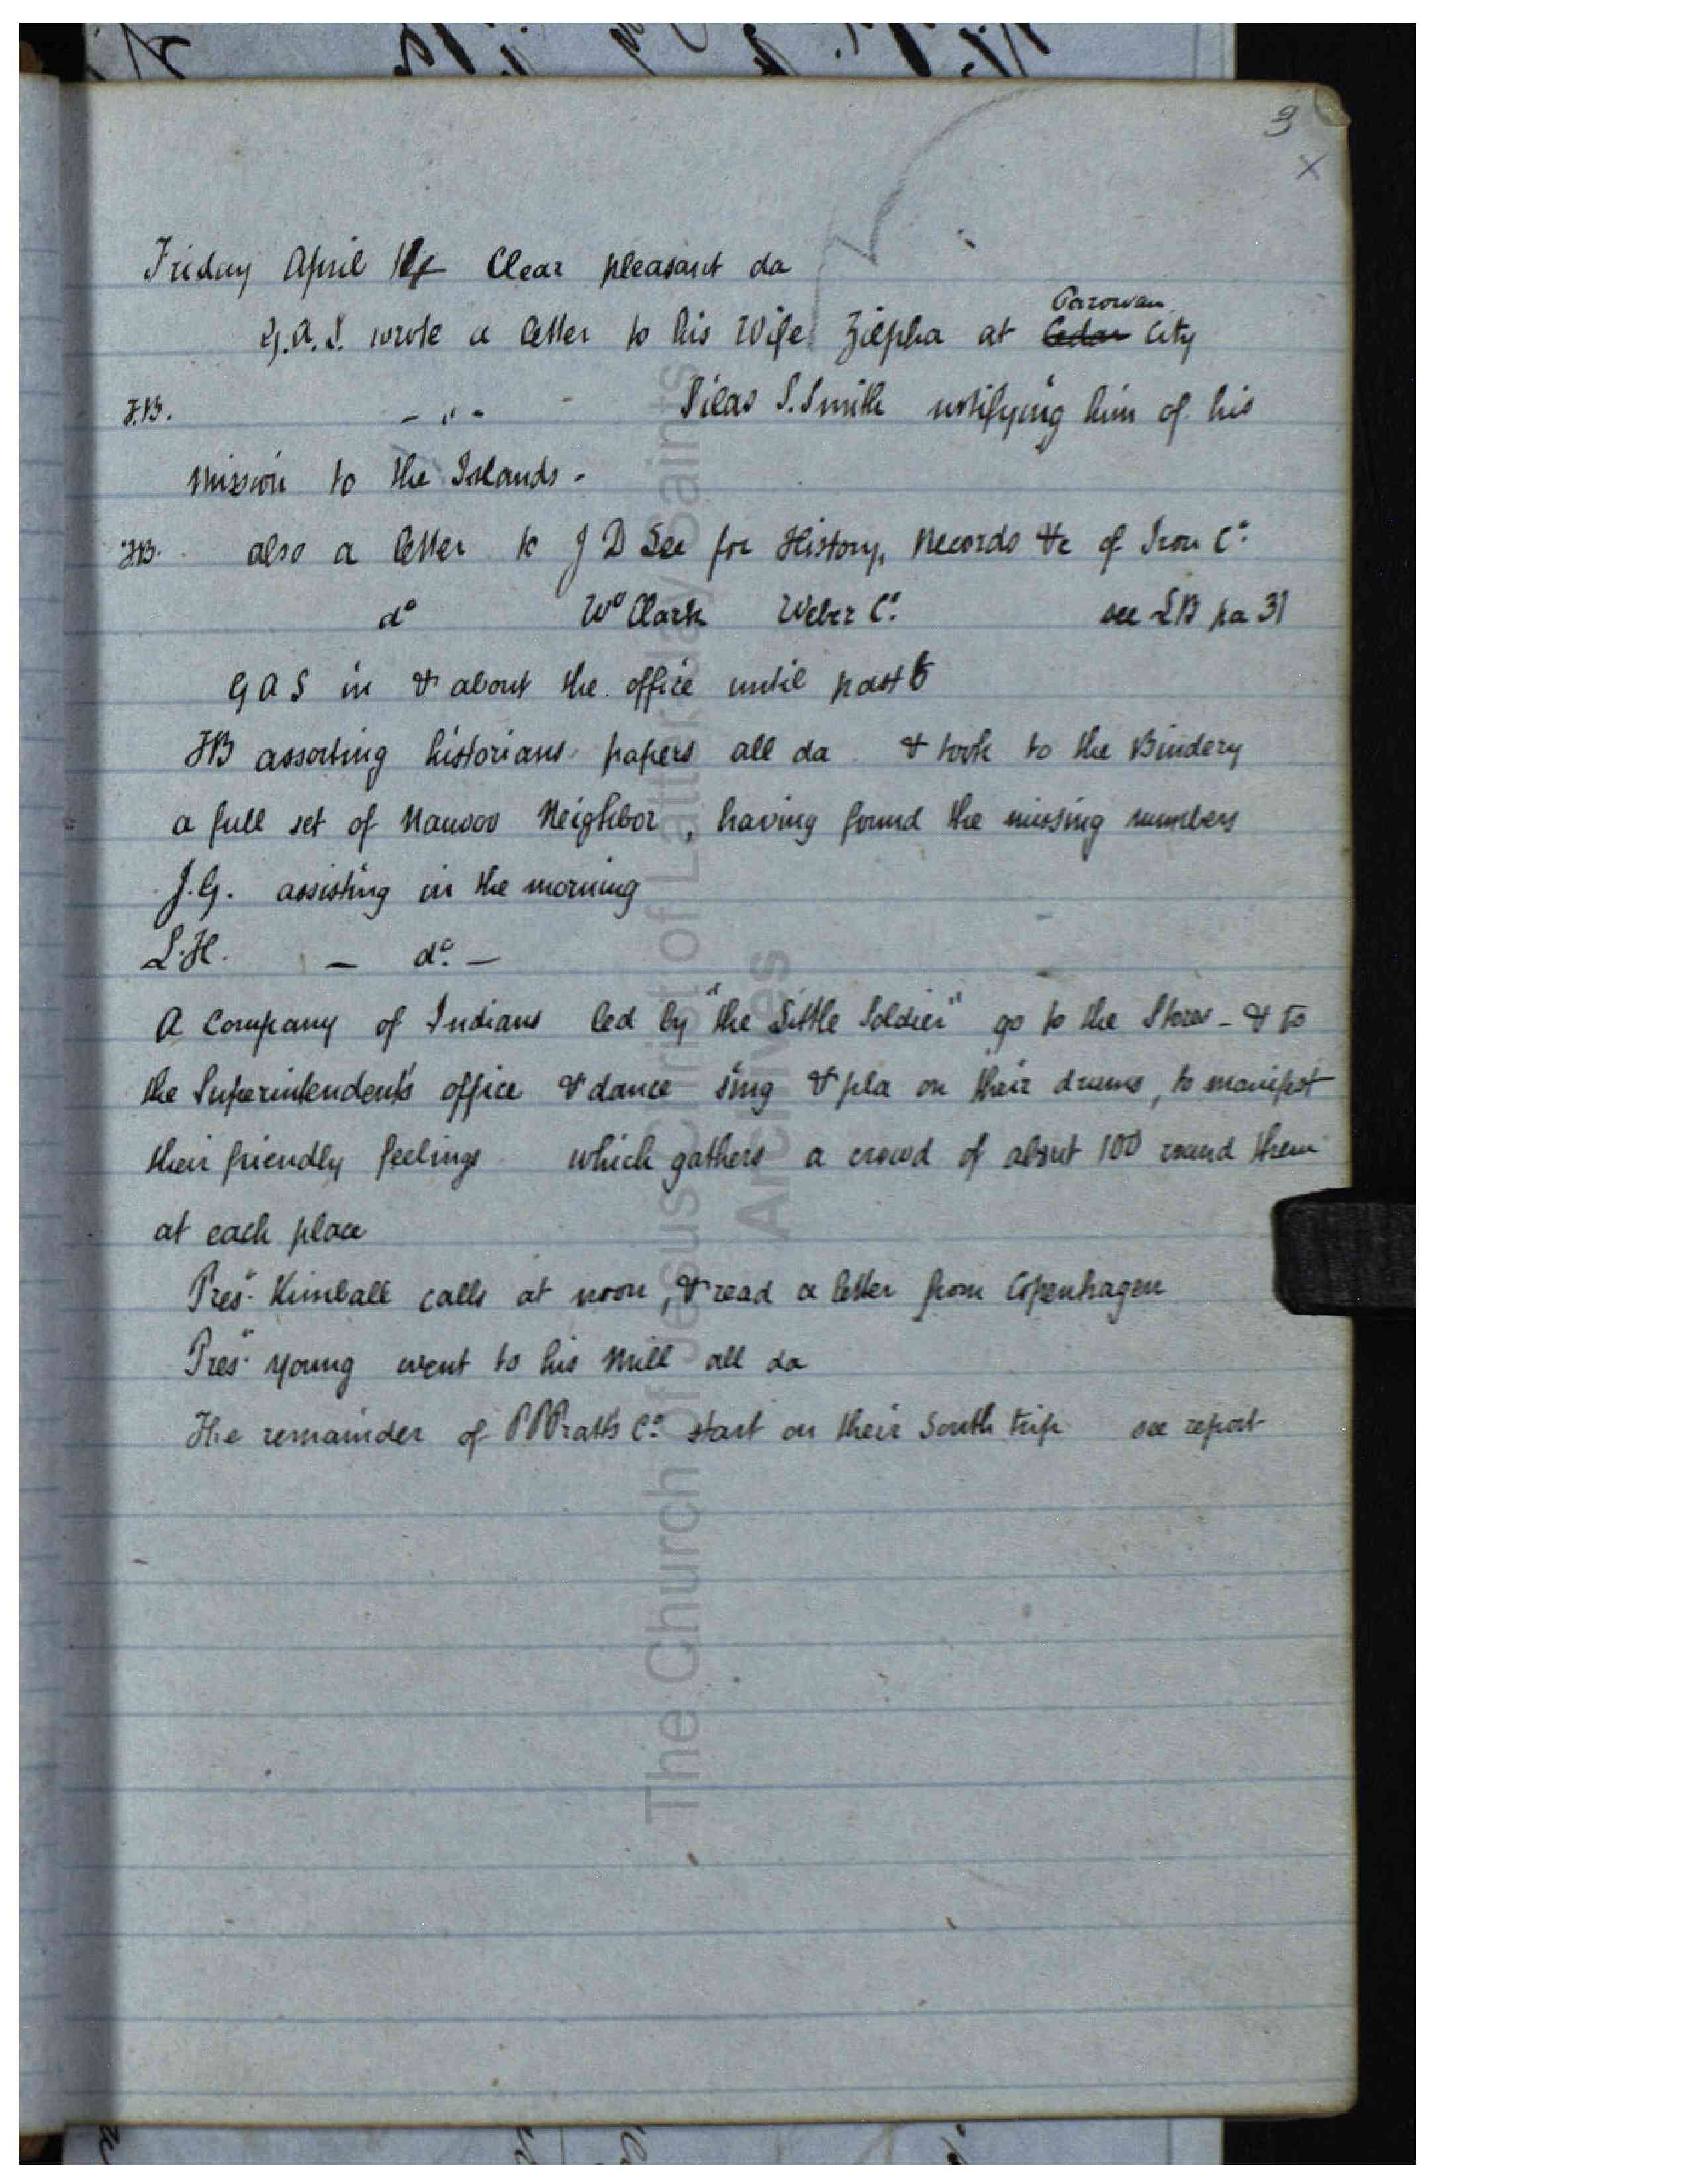 3
x
Friday April 14 Clear pleasant da
Parowan
G.A.S. wrote a letter to his Wife Zilpha at Cedar City
J.B. - " - Silas S. Smith notifying him of his
mission to the Islands -
J.B. also a letter to J D Lee for History, Records &c of Iron Co.
do Wo Clark Weber Co. see LB pa 31
G A S in & about the office until past 6
JB assorting historians papers all da & took to the Bindery
a full set of Nauvoo Neighbor, having found the missing numbers
J.G. assisting in the morning
L.H. - do. -
A Company of Indians led by "the Little Soldier" go to the Stores - & to
the Superintendent's office & dance sing & pla on their drums, to manifest
their friendly feelings which gathers a crowd of about 100 round them
at each place
Prest. Kimball calls at noon, & read a letter from Copenhagen
Prest. Young went to his Mill all da
The remainder of P P Pratt's Co. start on their South trip see report
The Church of Jesus Christ of Latter-day Saints
Archives